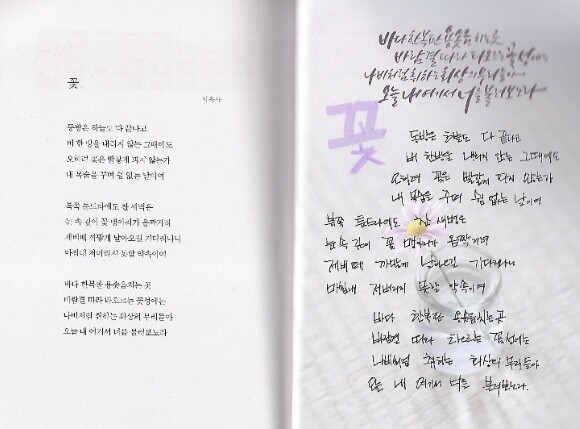 꽃
이육사
동방은 하늘도 다 끝나고
비 한 방울 내리지 않는 그때에도
오히려 꽃은 빨갛게 피지 않는가
내 목숨을 꾸며 쉼 없는 날이여
북쪽 툰드라에도 찬 새벽은
눈 속 깊이 꽃 맹아리가 옴짝거려
제비떼 까맣게 날아오길 기다리나니
마침내 저버리지 못할 약속이여
바다 한복판 용솟음치는 곳
바람결 따라 타오르는 꽃성에는
나비처럼 취하는 회상의 무리들아
오늘 내 여기서 너를 불러보노라
바다 한복판 용솟음치는 곳
바람결 따라 타오르는 꽃성에는
나비처럼 취하는 회상의 무리들아
오늘 내 여기서 너를 불러보노라
꽃
동방은 하늘도 다 끝나고
비 한방울 내리지 않는 그때에도
오히려 꽃은 빨갛게 피지 않는가
내 목숨을 꾸며 쉼 없는 날이여
북쪽 툰드라에도 찬 새벽은
눈 속 깊이 꽃 맹아리가 옴짝거려
제비떼 까맣게 날아오길 기다리나니
마침내 저버리지 못할 약속이여
바다 한복판 용솟음치는 곳
바람결 따라 타오르는 꽃성에는
나비처럼 취하는 회상의 무리들아
오늘 내 여기서 너를 불러보노라